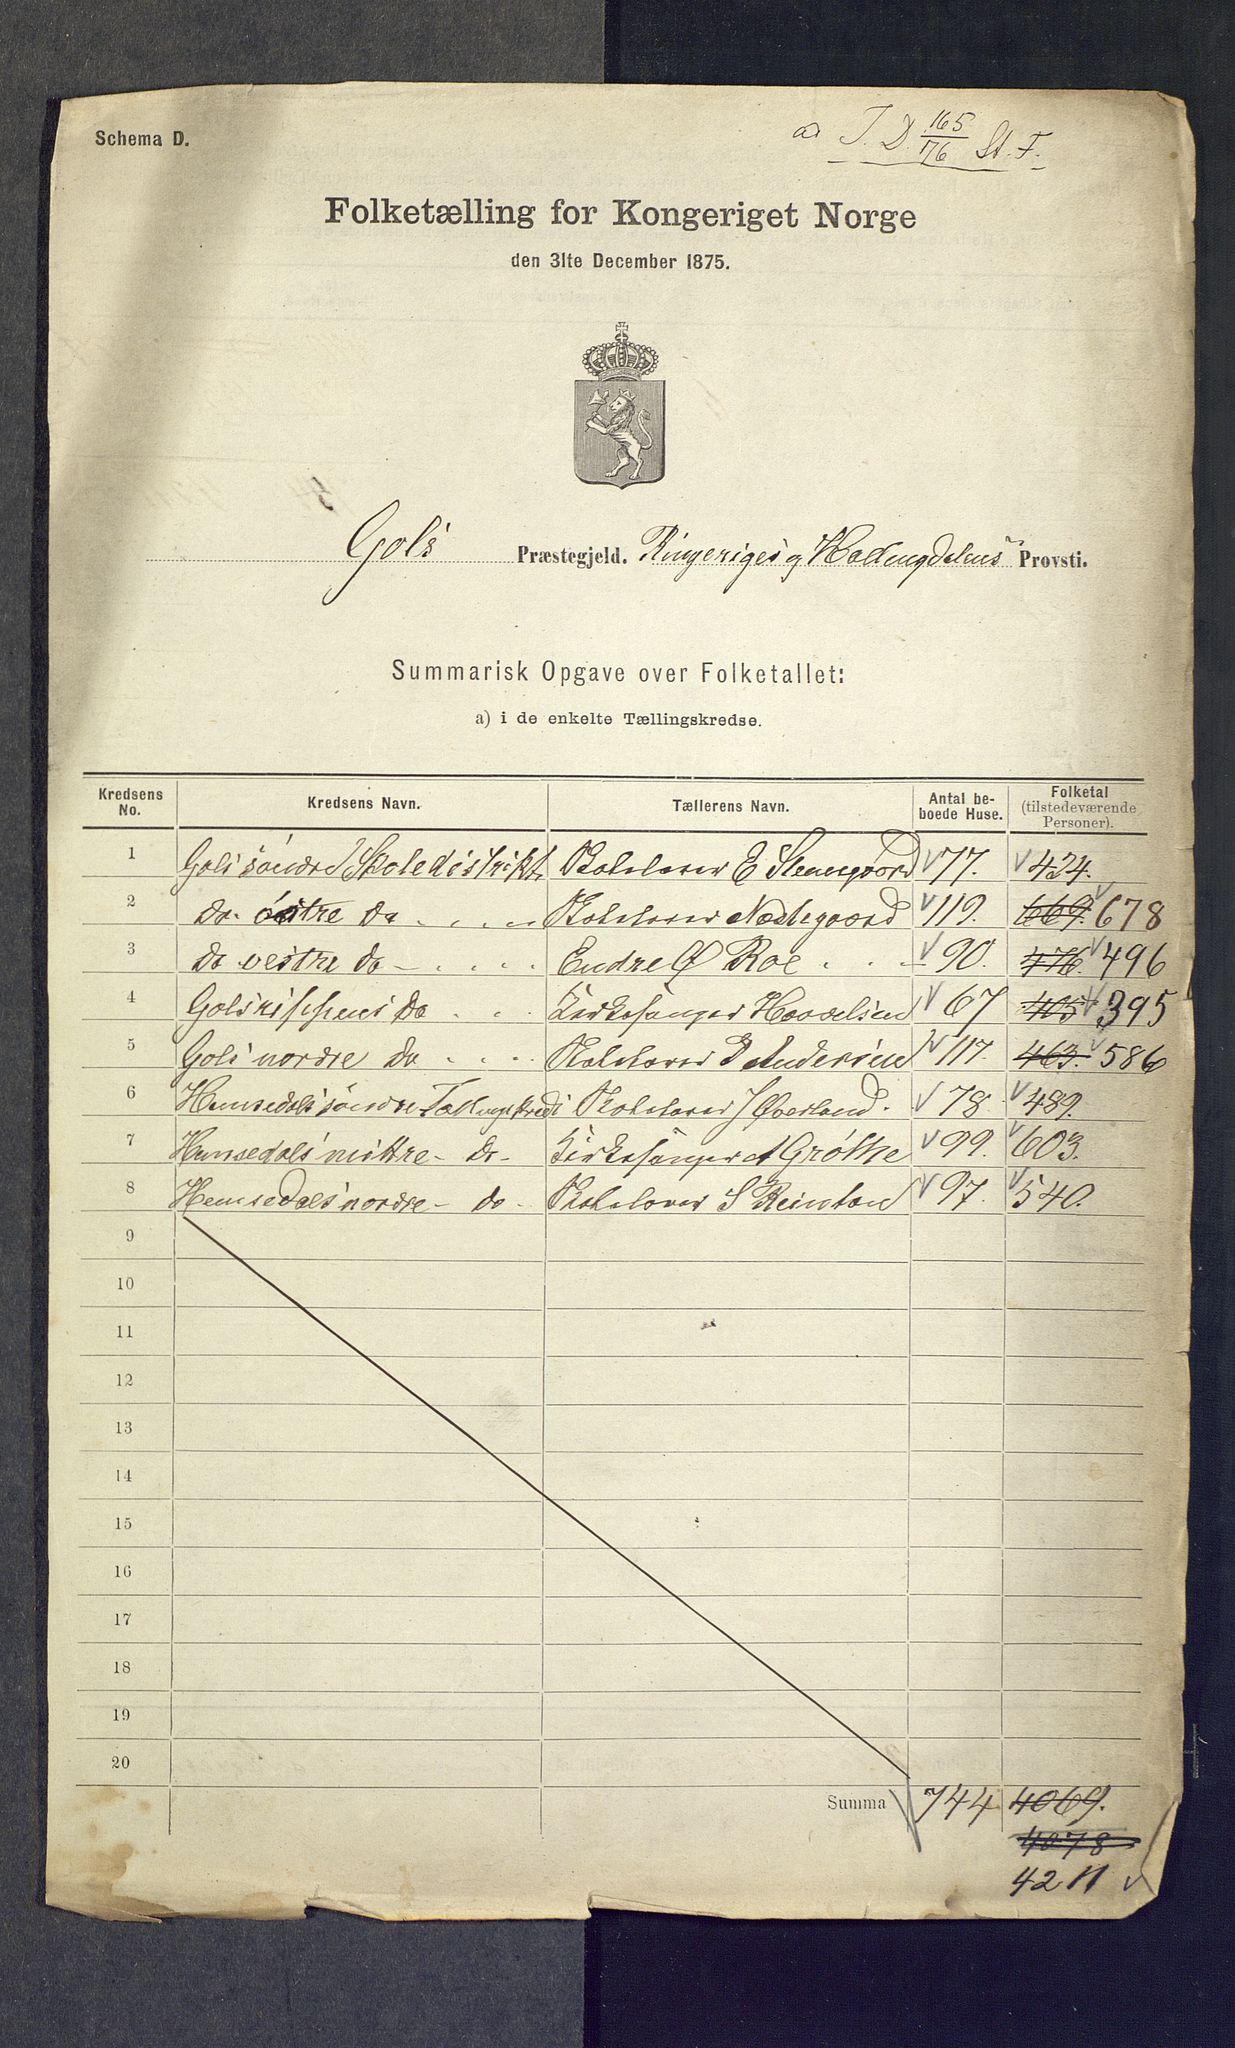 Schema D.
ad J. D. 165/76 St. F.
Folketælling for Kongeriget Norge
den 31te December 1875.
Gols Præstegjeld. Ringeriges og Hallingdalens Provsti.
Summarisk Opgave over Folketallet:
a) i de enkelte Tællingskredse.
Kredsens No. Kredsens Navn. Tællerens Navn. Antal beboede Huse. Folketal (tilstedeværende Personer).
1 Gols søndre Skoledistrikt. Skolelærer E Stenersgaard 77. 424.
2 do. østre do Skolelærer Nødtegaard 119. 669. 678
3 do vestre do Endre Ø Roe 90. 776. 496
4 Gols do Kirkesanger 67 405 395
5 Gols nordre do Skolelærer Andersen 117. 463. 586
6 Hemsedals søndre Tællingskreds Skolelærer J Øverland. 78 489.
7 Hemsedals mittre do Kirkesanger A Grøthe 99. 603.
8 Hemsedals nordre do Skolelærer S Reinton 97. 540.
9
10
11
12
13
14
15
16
17
18
19
20
Summa 744 4069.
4078
4211